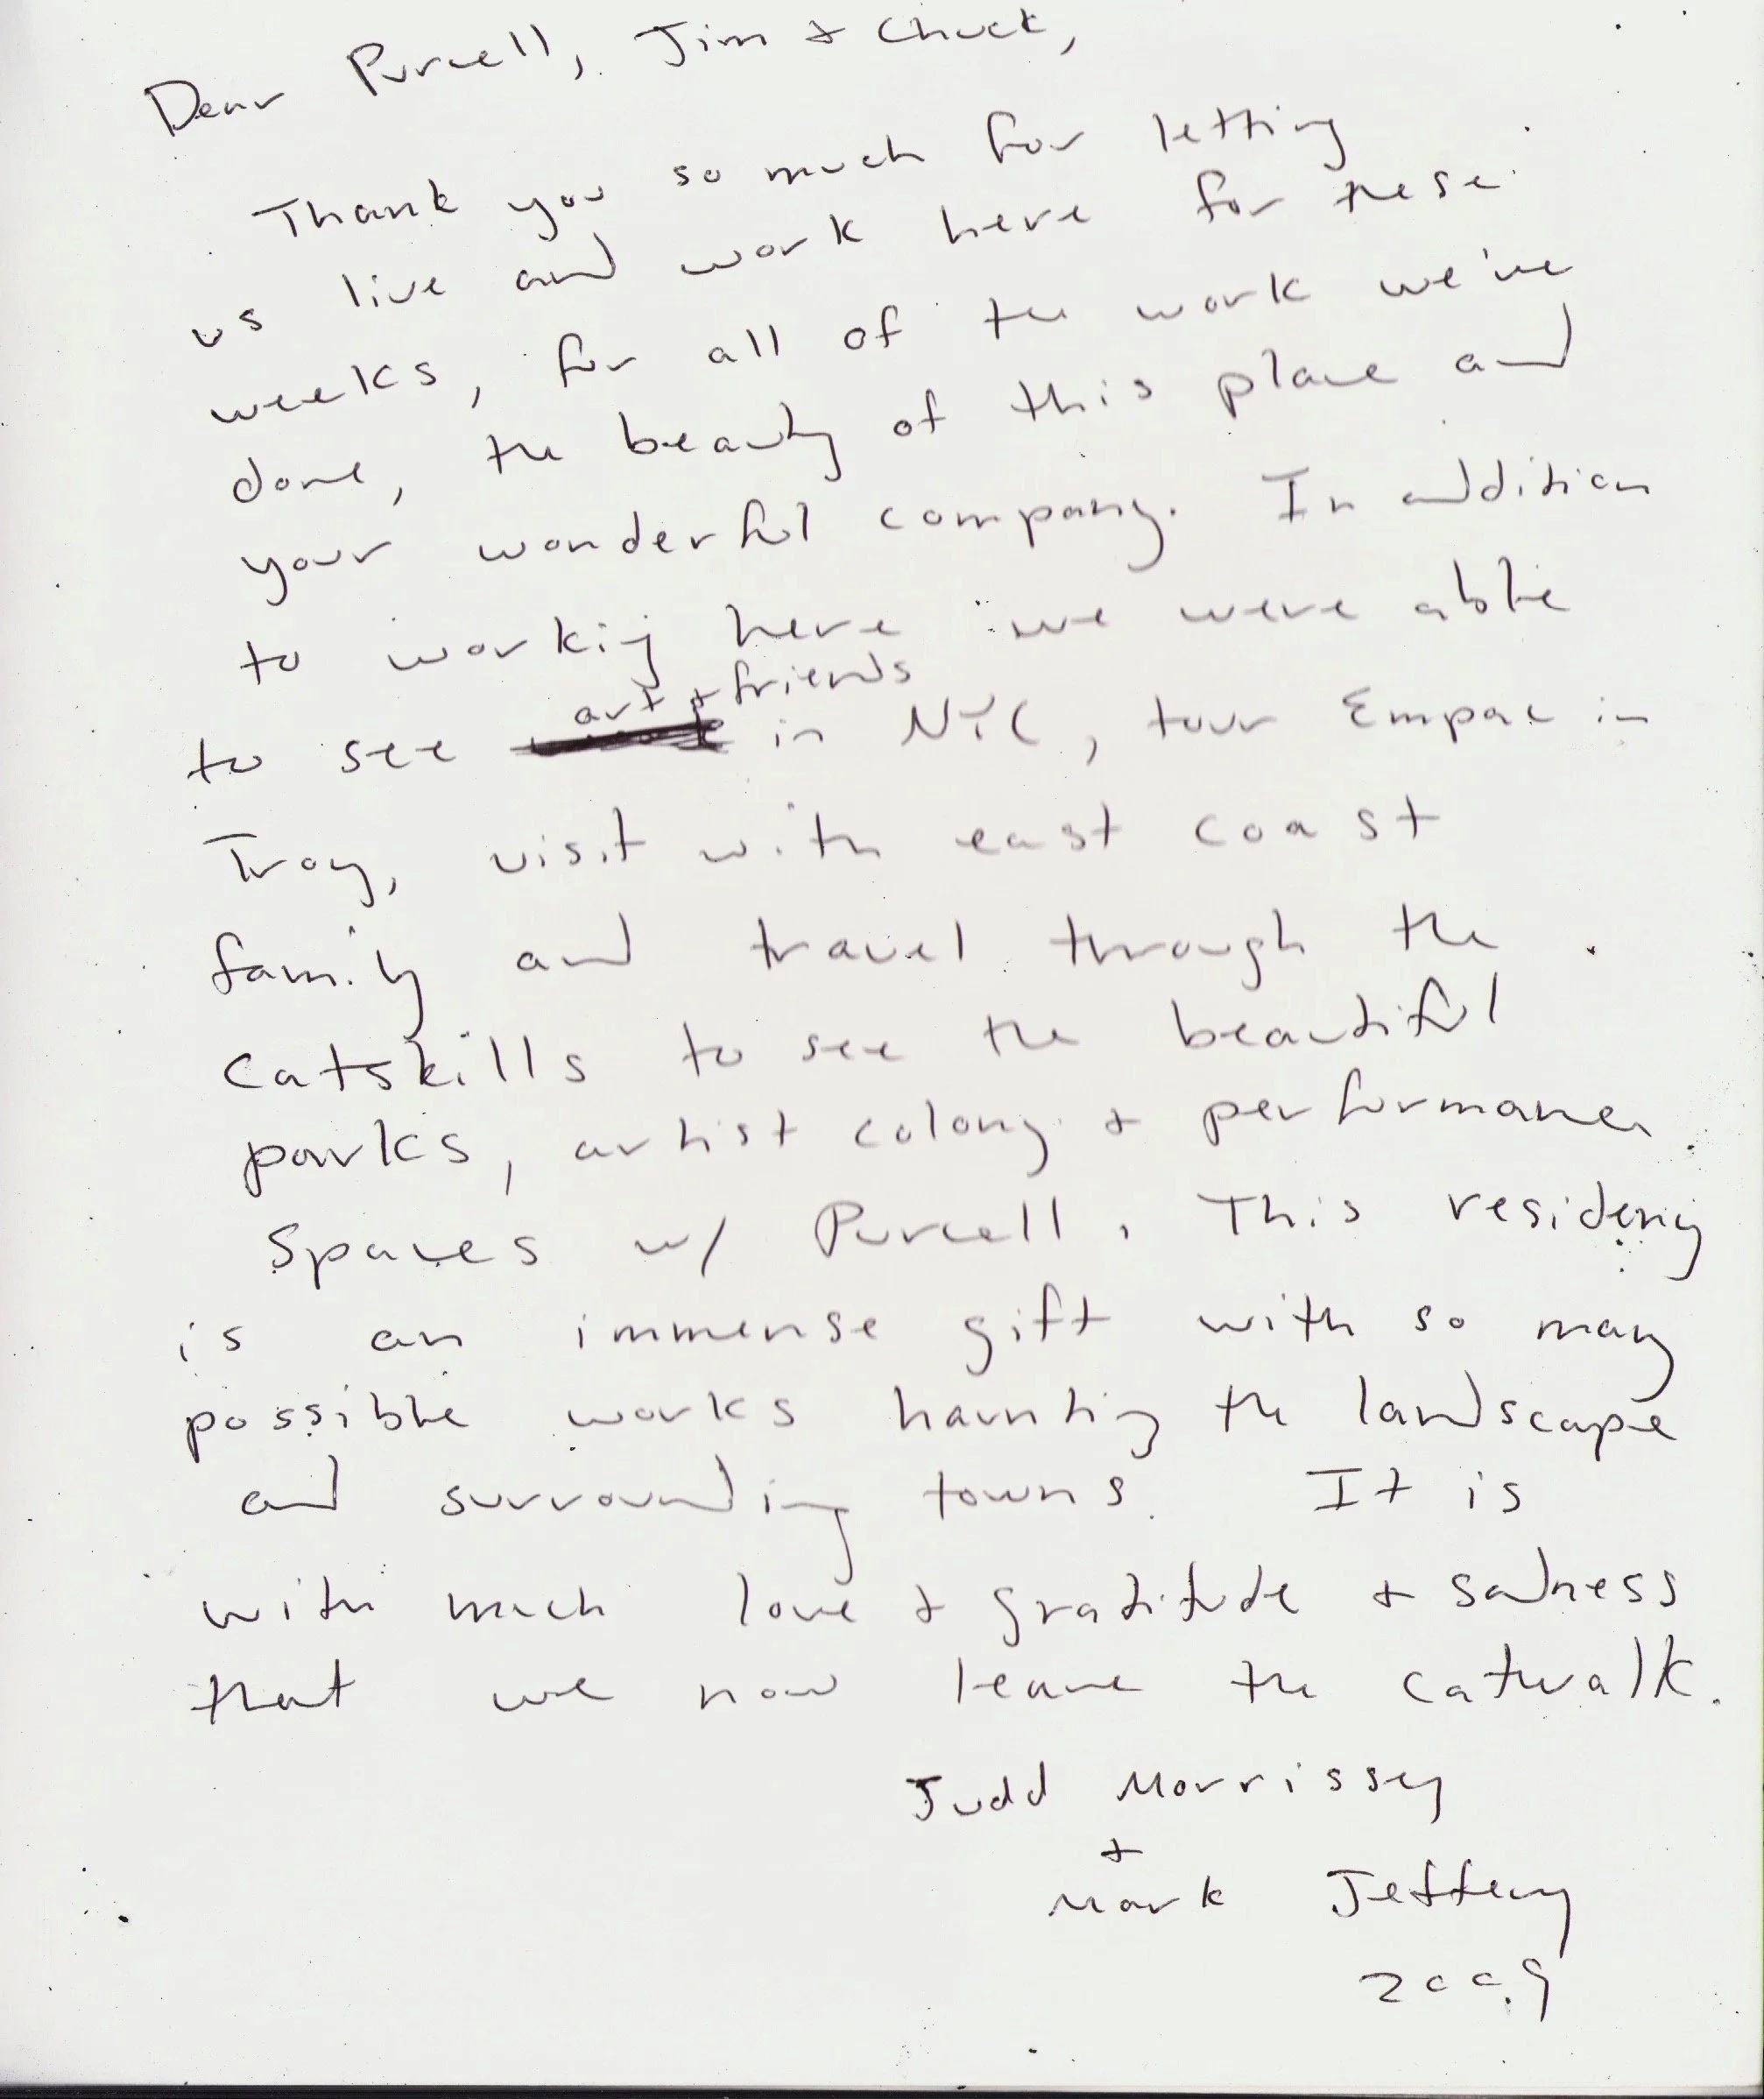 Dear Purcell, Jim + Chuck,
Thank you so much for letting
us live and work here for these
weeks, for all of the work we've
done, the beauty of this place and
your wonderful company. In addition
to working here we were able
art + friends
to see in NYC, tour Empac in
Troy, visit with east coast
family and travel through the
Catskills to see the beautiful
parks, artist colony + performance
spaces w/ Purcell. This residency
is an immense gift with so many
possible works haunting the landscape
and surrounding towns. It is
with much love + gratitude + sadness
that we now leave the catwalk.
Judd Morrissey
+
Mark Jeffery
2009